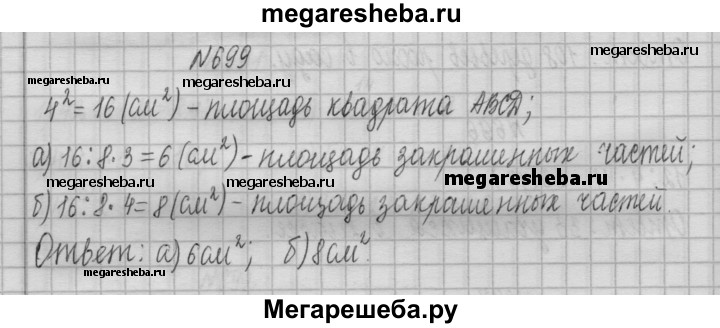 megaresheba.ru
№699
megaresheba.ru
megaresheba.ru
4² = 16 (см²) - площадь квадрата ABCD;
а) 16 : 8 · 3 = 6 (см²) - площадь закрашенных частей;
megaresheba.ru
megaresheba.ru
б) 16 : 8 · 4 = 8 (см²) - площадь закрашенных частей.
Ответ: а) 6 см²; б) 8 см².
megaresheba.ru
megaresheba.ru
Мегарешеба.ру